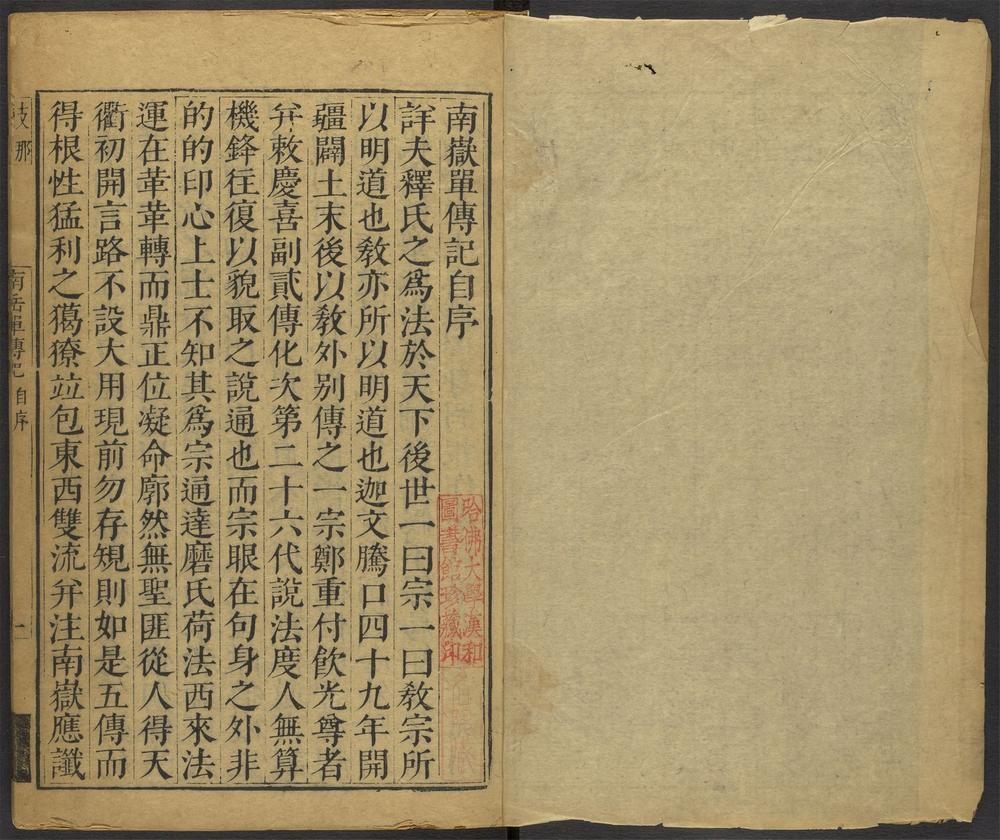 南嶽單傳記自序
詳夫釋氏之爲法於天下後世一曰宗一曰敎宗所
以明道也敎亦所以明道也迦文騰口四十九年開
疆闢土末後以敎外别傳之一宗鄭重付飮光尊者
弁敕慶喜副貳傳化次第二十六代說法度人無算
機鋒往復以貌取之說通也而宗眼在句身之外非
的的印心上士不知其爲宗通達磨氏荷法西來法
運在革革轉而鼎正位凝命廓然無聖匪從人得天
衢初開言路不設大用現前勿存䂓則如是五傳而
得根性猛利之獦獠竝包東西雙流弁注南嶽應讖
支那
南岳單傳記
自序
一
哈佛大學漢和
圖書館珍藏印